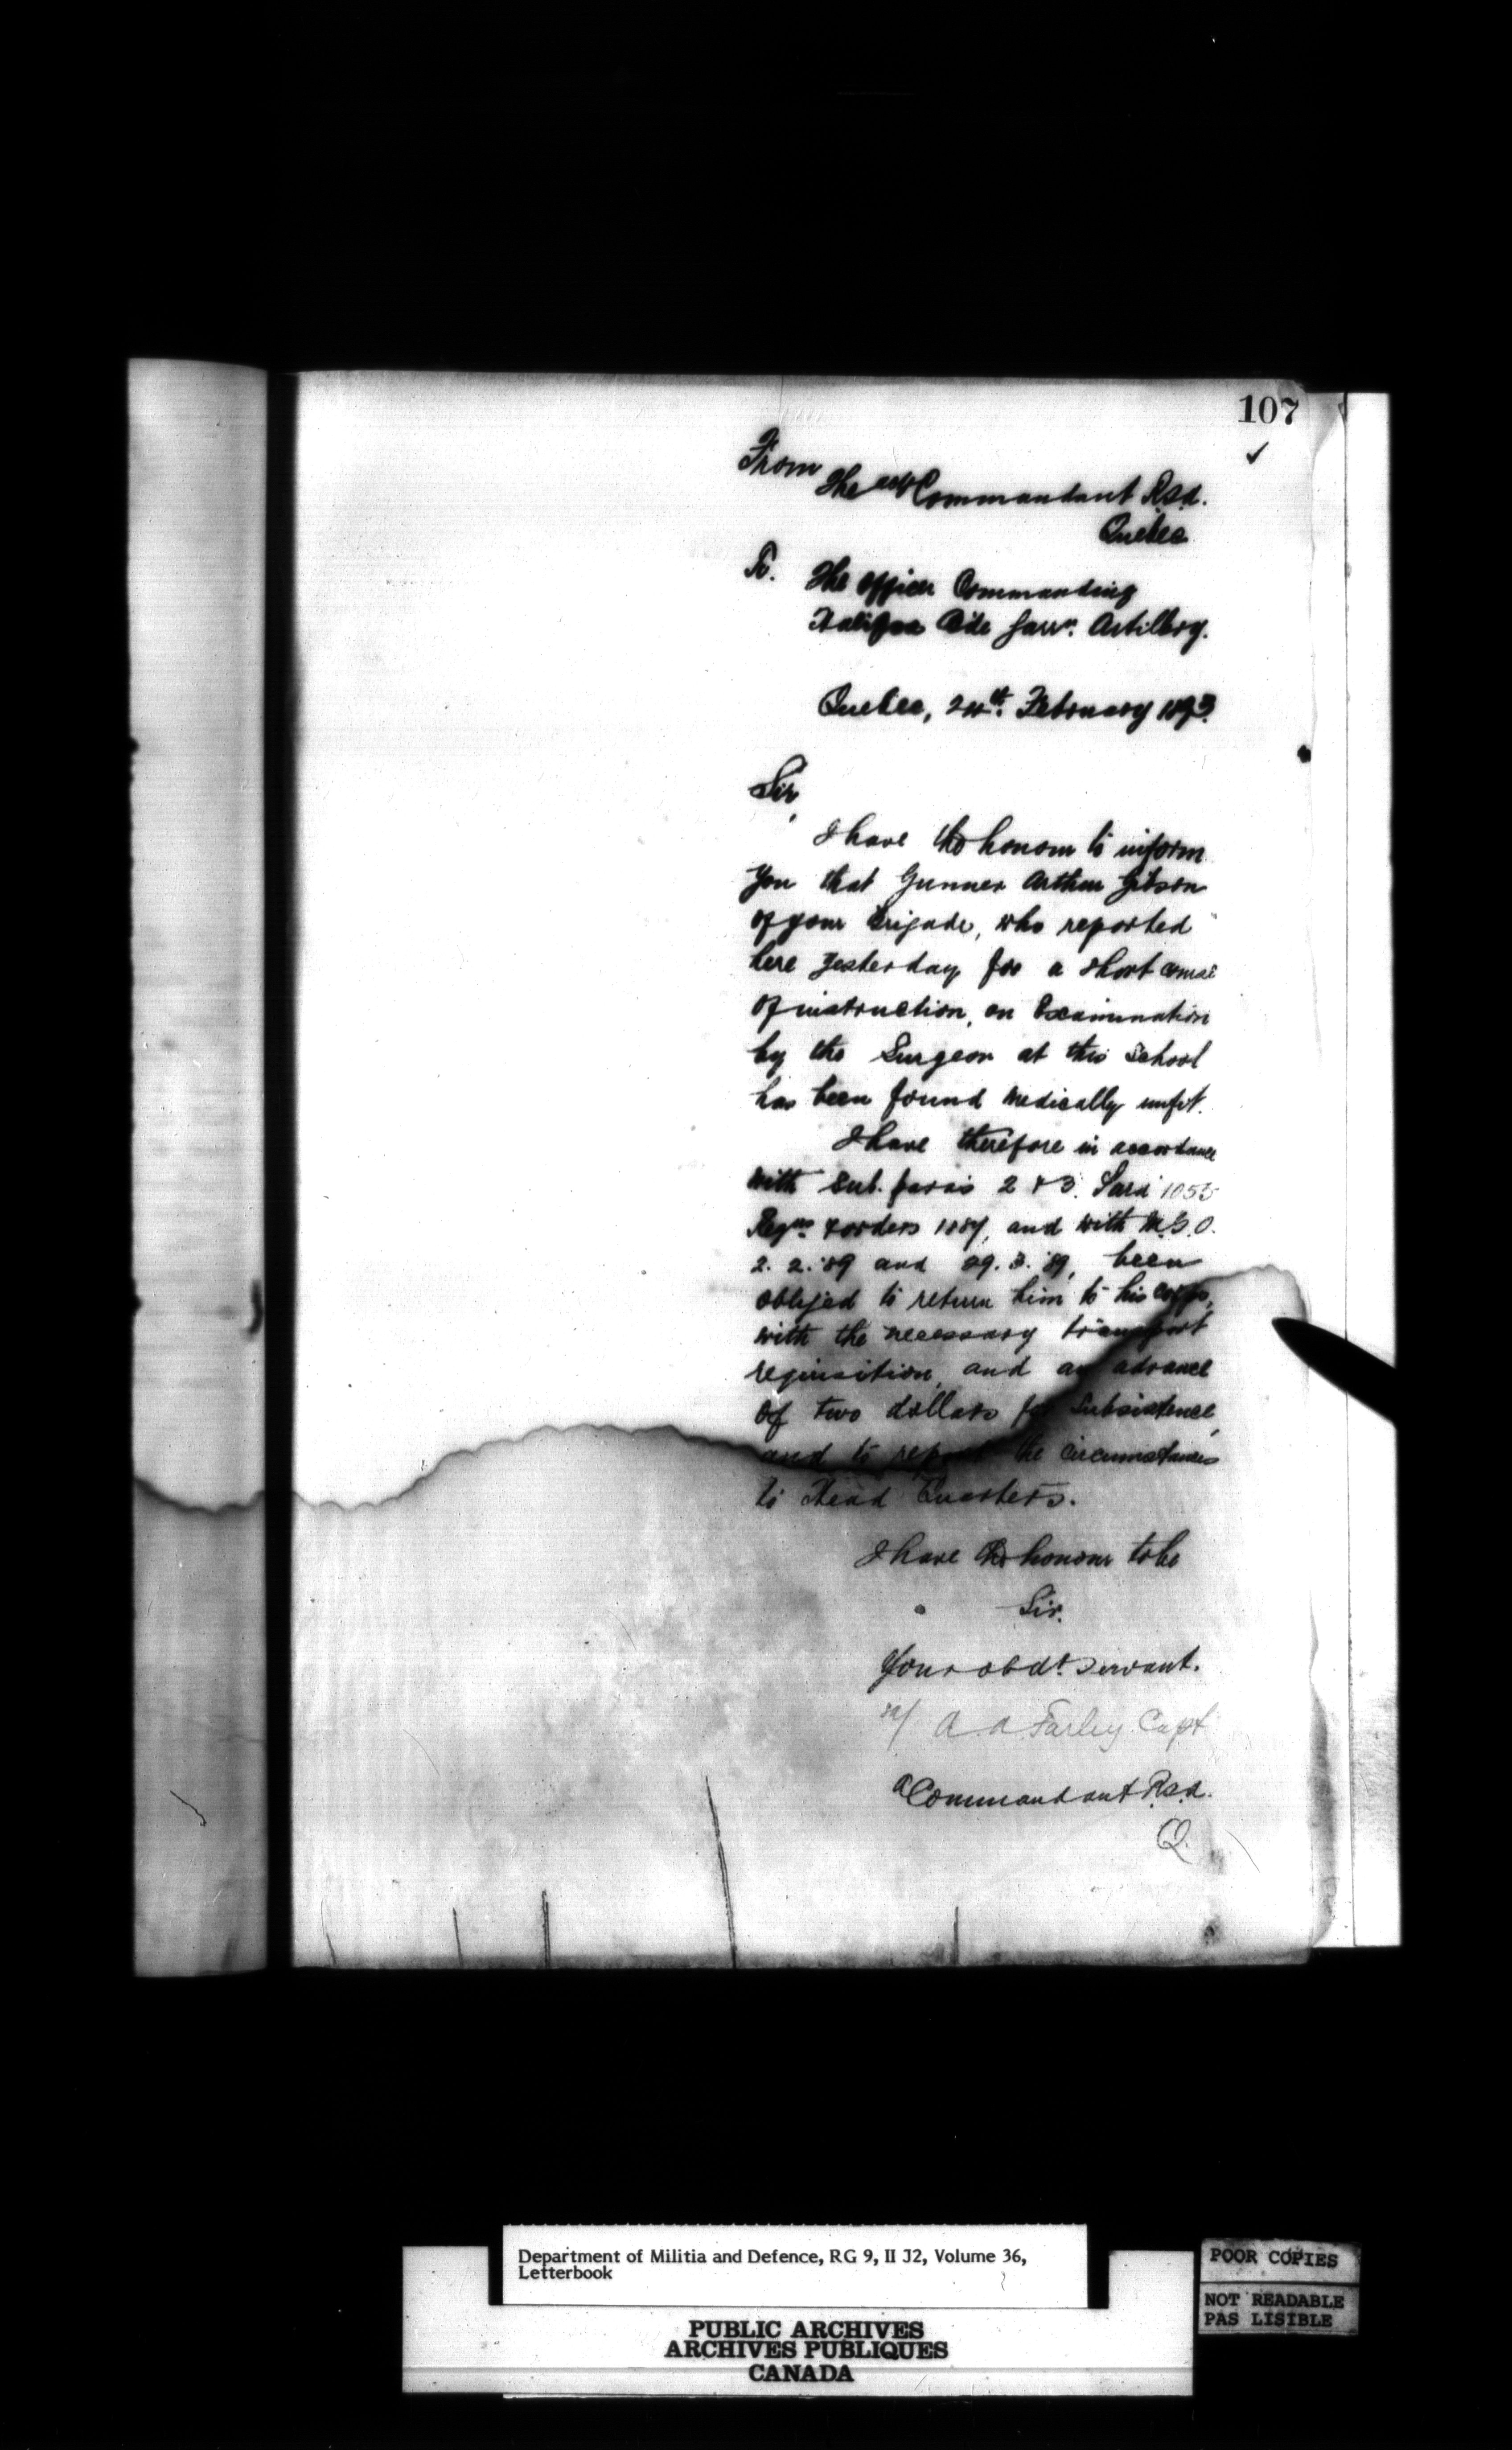 107
From
The actg Commandant R.S.A.
Quebec
To. The Officer Commanding
Halifax B'de Garrn. Artillery.
Quebec, 24th. February 1893.
Sir,
I have the honour to inform
you that Gunner Arthur Gibson
of your Brigade, who reported
here yesterday for a short course
of instruction, on Examination
by the Surgeon at this School
has been found medically unfit.
I have therefore in accordance
with Sub. paras 2 & 3. Para 1055
Regns. & orders 1887, and with M.G.O.
2. 2. '89 and 29. 3. '89, been
obliged to return him to his Corps,
with the necessary transport
requisition, and an advance
of two dollars for Subsistence,
and to report the circumstances
to Head Quarters.
I have the honour to be
Sir.
Your obdt. Servant.
sd/ A. A. Farley. Capt
a Commandant R.S.A.
Q.
Department of Militia and Defence, RG 9, II J2, Volume 36,
Letterbook
PUBLIC ARCHIVES
ARCHIVES PUBLIQUES
CANADA
POOR COPIES
NOT READABLE
PAS LISIBLE